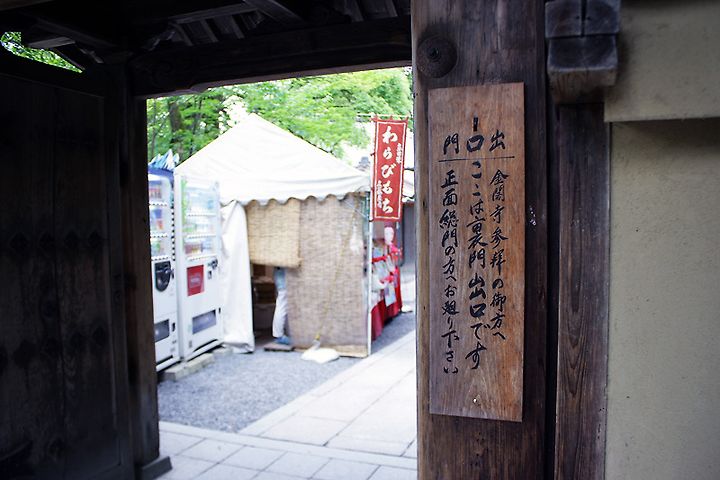 出口門
金閣寺参拝の御方へ
ここは裏門出口です
正面総門の方へお廻り下さい
わらびもち